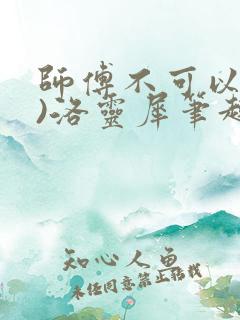 師傅不可以
)洛靈犀筆趣
知心人魚
未经同意禁止转载